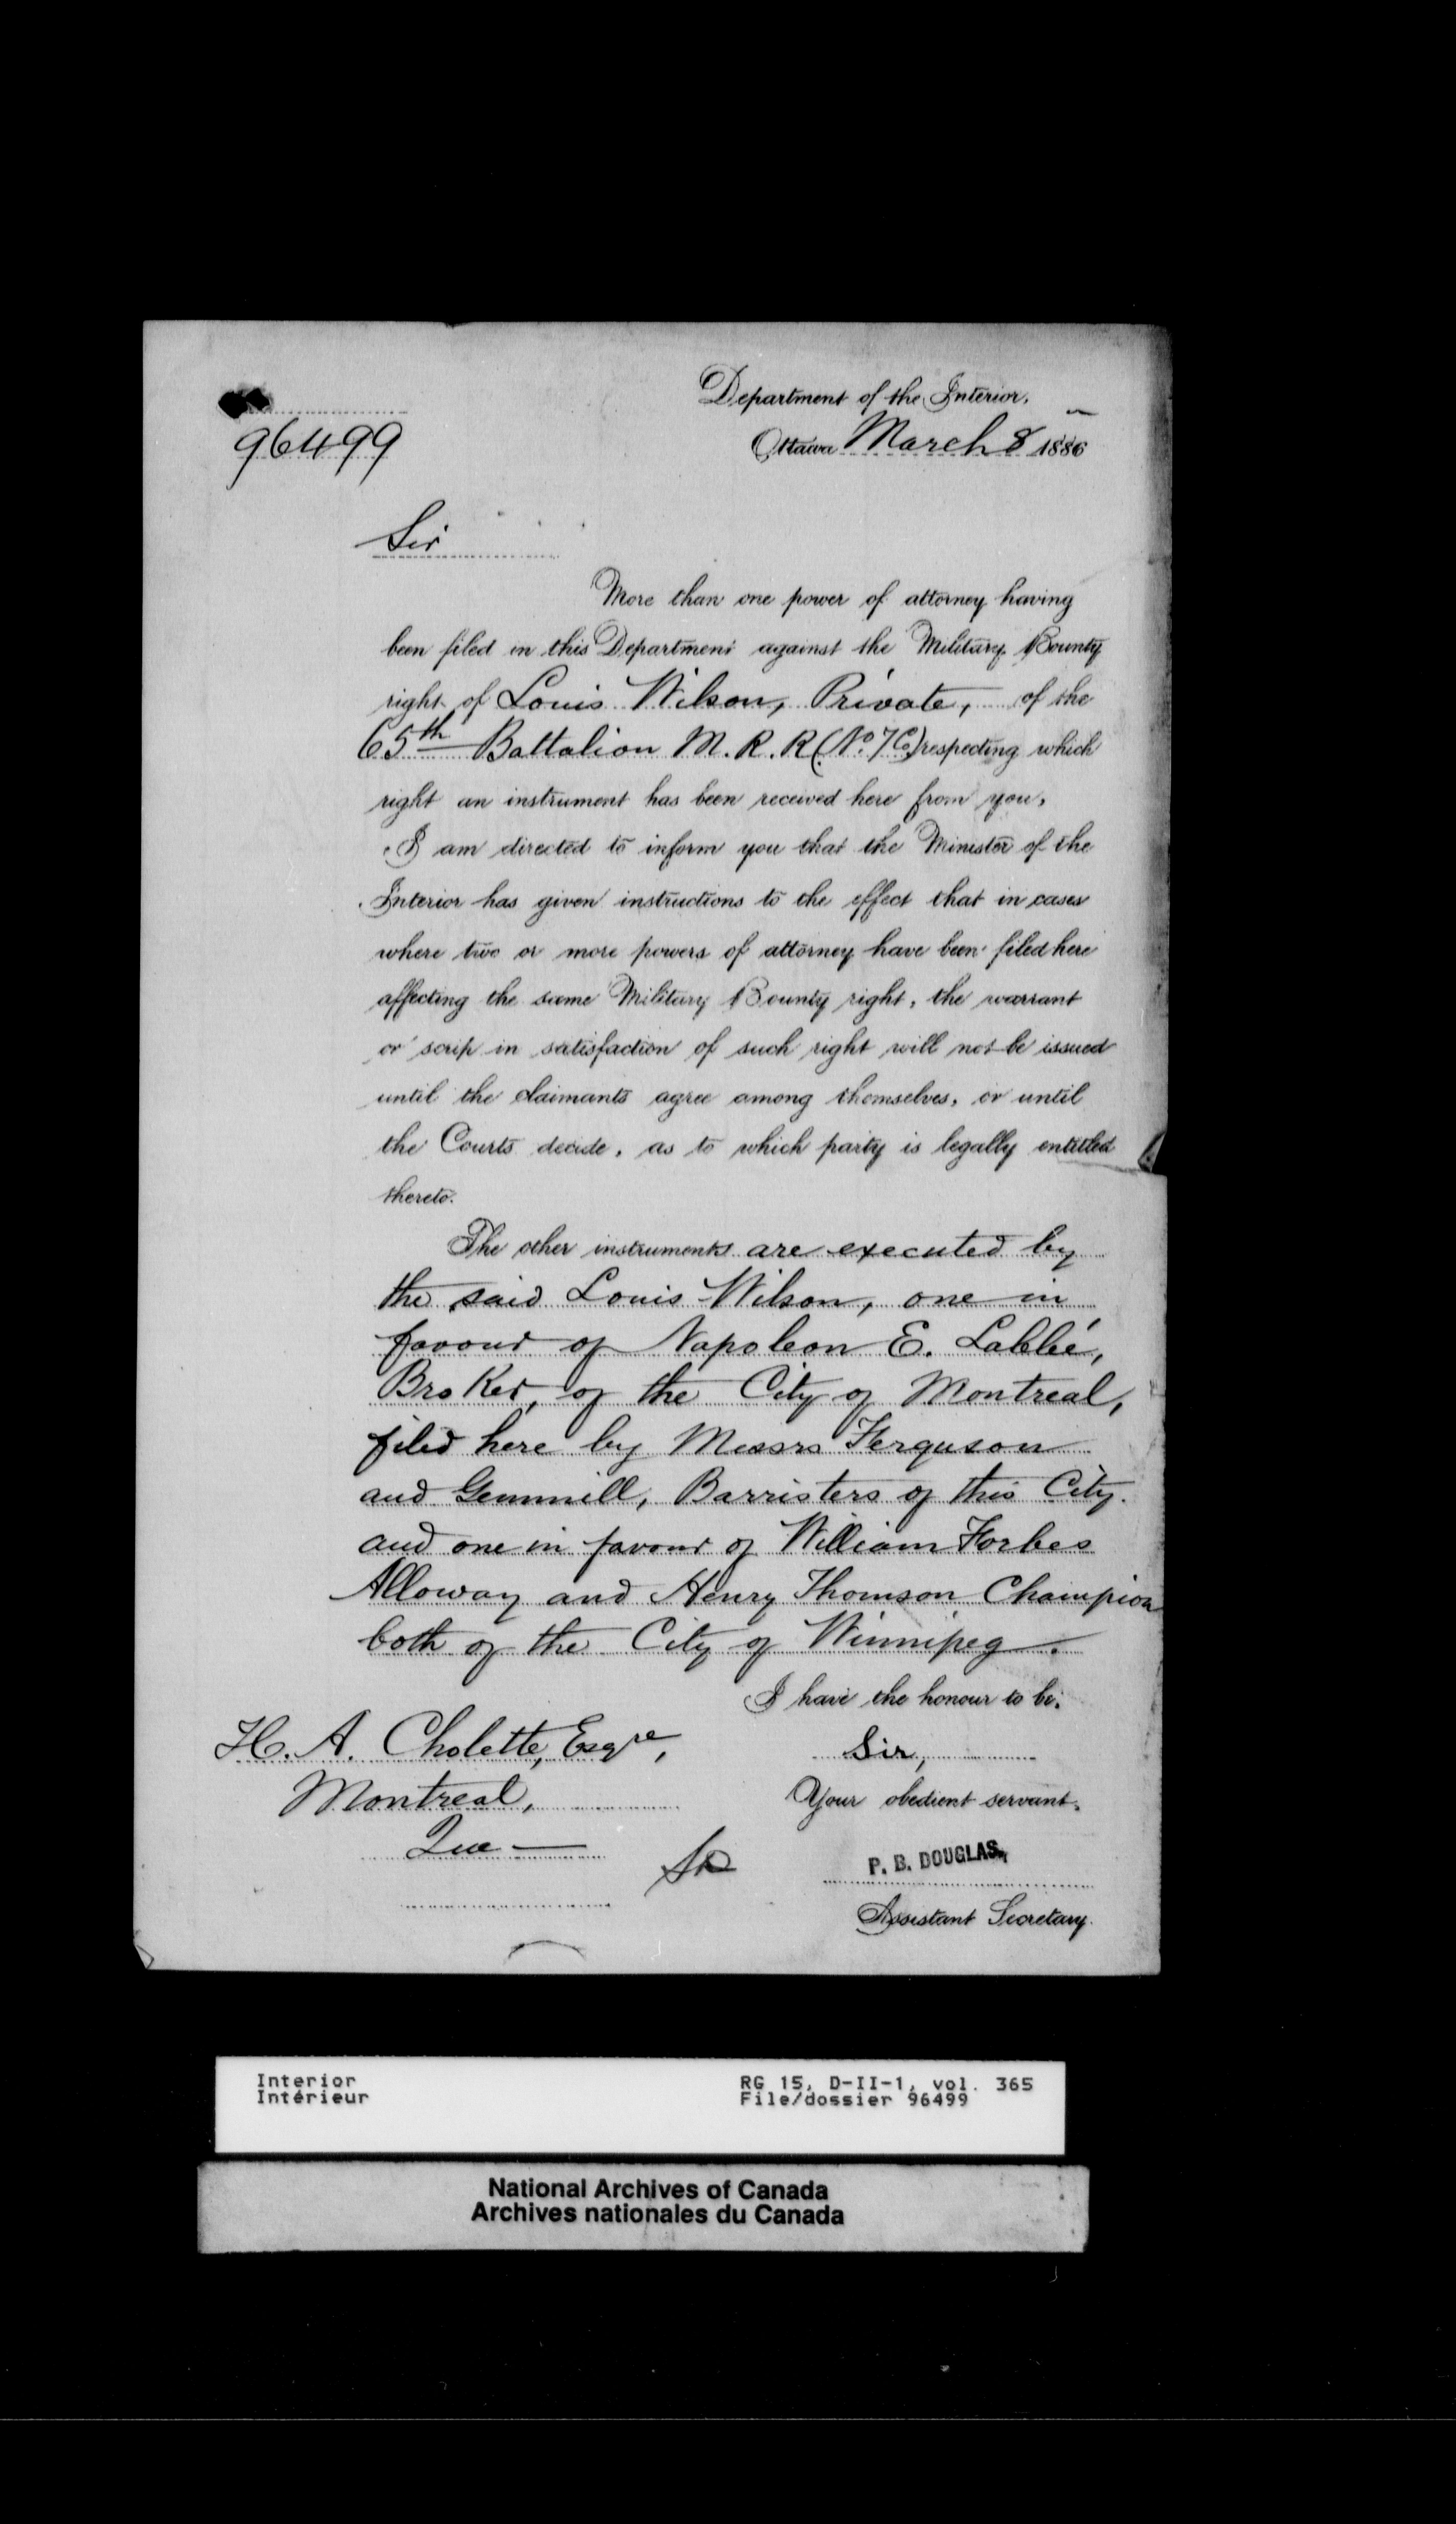 Department of the Interior,
96499
Ottawa March 8 1886
Sir
More than one power of attorney having
been filed in this Department against the Military Bounty
right of Louis Wilson, Private, of the
65th Battalion M. R. R (No. 7 Co.) respecting which
right an instrument has been received here from you,
I am directed to inform you that the Minister of the
Interior has given instructions to the effect that in cases
where two or more powers of attorney have been filed here
affecting the same Military Bounty right, the warrant
or scrip in satisfaction of such right will not be issued
until the claimants agree among themselves, or until
the Courts decide, as to which party is legally entitled
thereto.
The other instruments are executed by
the said Louis Wilson, one in
favour of Napoleon E. Labbé,
Broker, of the City of Montreal,
filed here by Messrs Ferguson
and Gemmill, Barristers of this City.
and one in favour of William Forbes
Alloway and Henry Thomson Champion
both of the City of Winnipeg.
I have the honour to be,
Sir,
Your obedient servant,
P. B. DOUGLAS,
Assistant Secretary.
H. A. Cholette, Esqre,
Montreal,
Que —
Interior
Intérieur
RG 15, D-II-1, vol. 365
File/dossier 96499
National Archives of Canada
Archives nationales du Canada